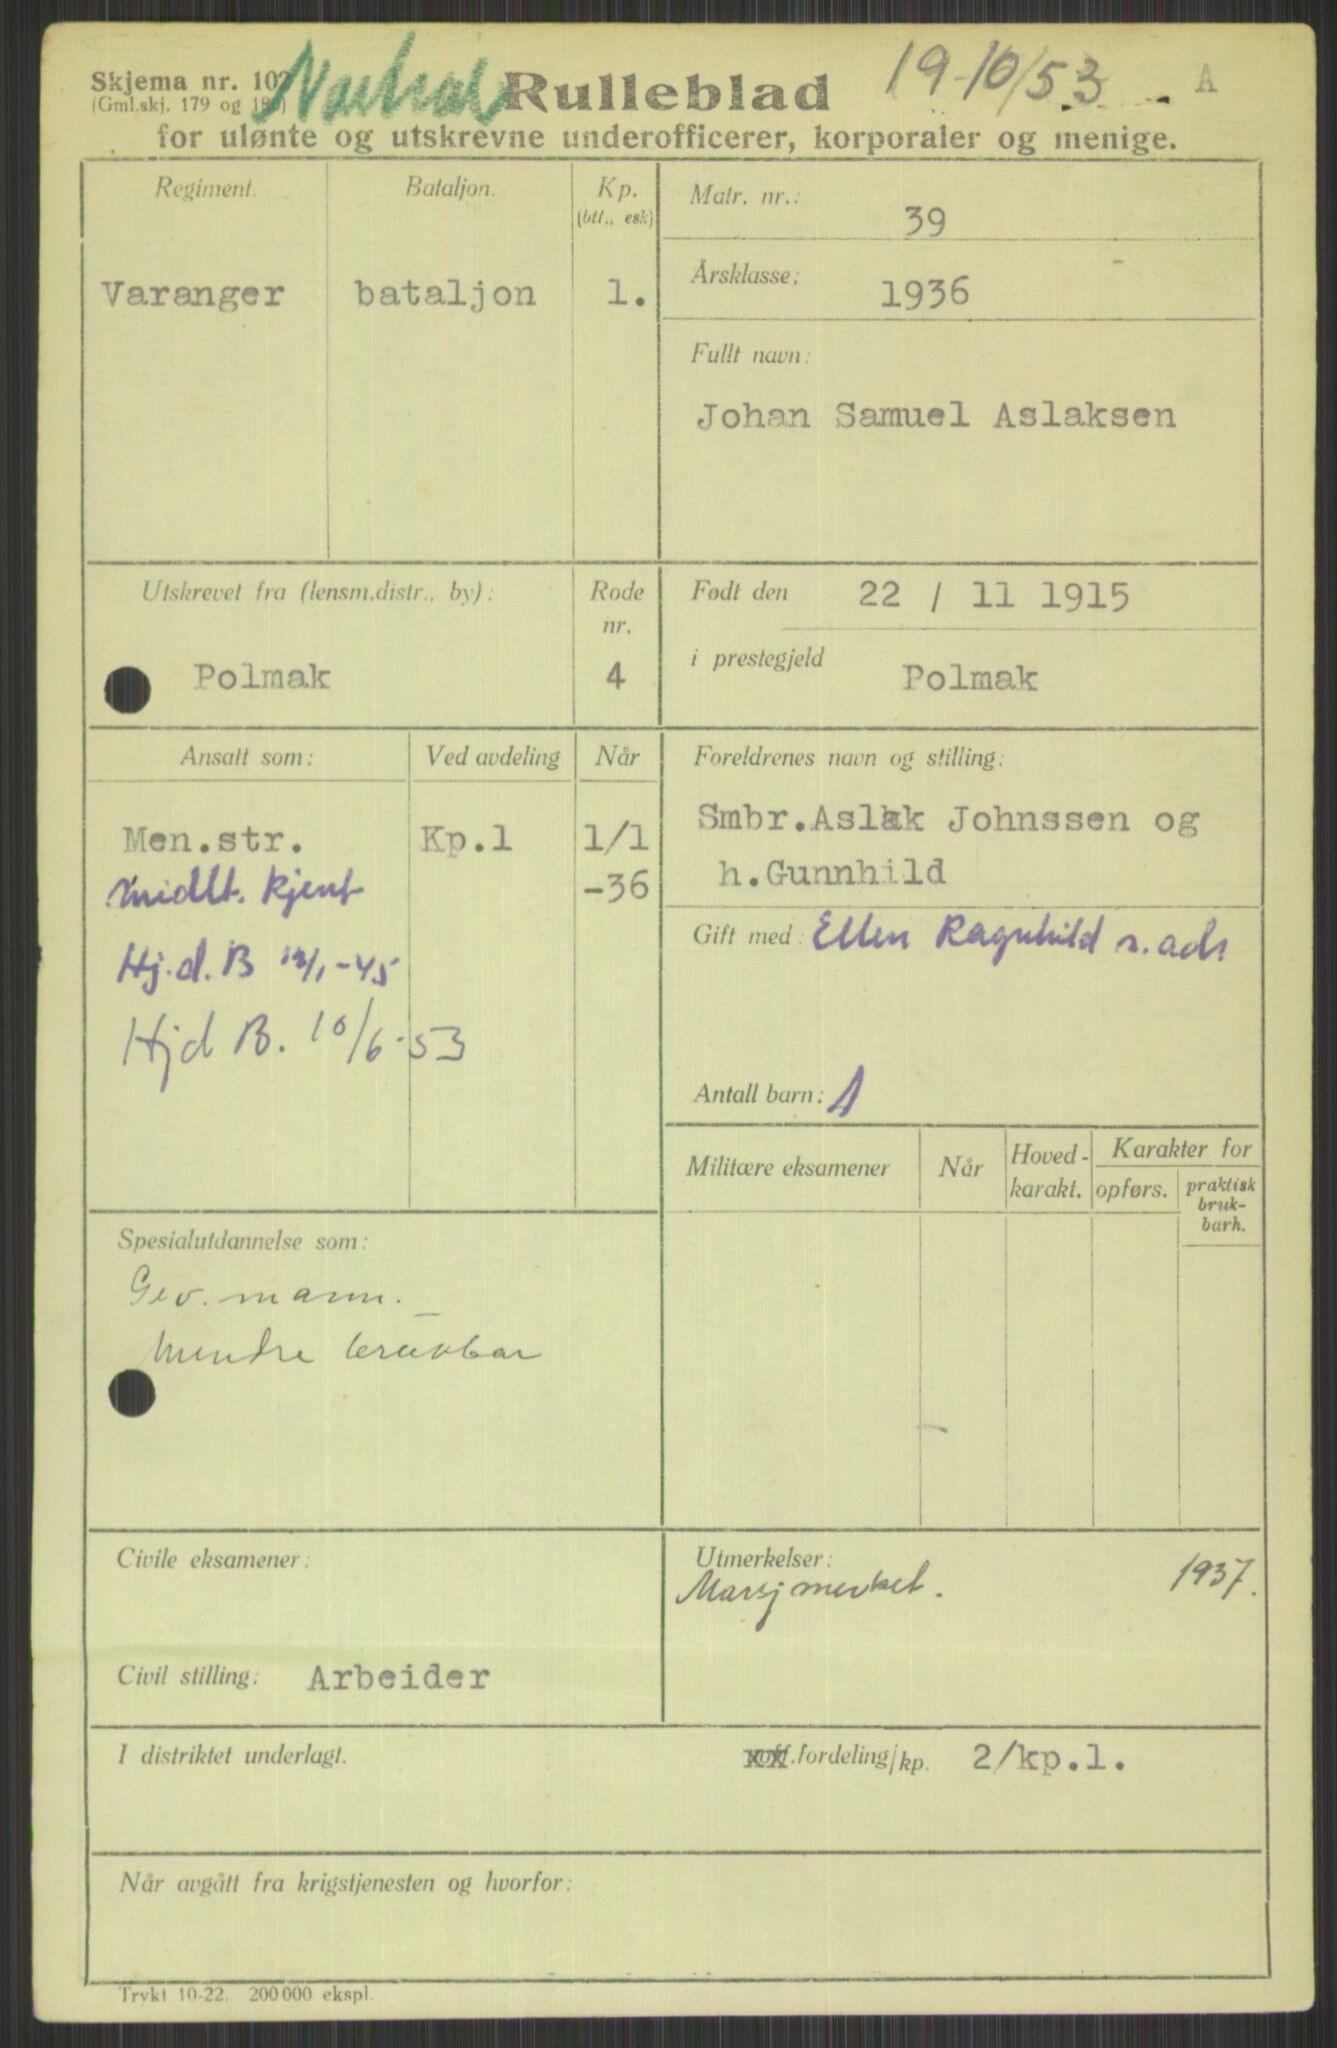 Skjema nr. 102
(Gml.skj. 179 og 180)
Rulleblad
19-10/53
A
for ulønte og utskrevne underofficerer, korporaler og menige.
Regiment. Bataljon. Kp.
(btt., esk)
Varanger bataljon 1.
Matr. nr.: 39
Årsklasse: 1936
Fullt navn:
Johan Samuel Aslaksen
Utskrevet fra (lensm.distr., by): Rode
nr.
Polmak 4
Født den 22 / 11 1915
i prestegjeld Polmak
Ansatt som: Ved avdeling Når
Men.str. Kp.1 1/1
midlt. kjent -36
Hj.d. B 12/1-45
Hjd B. 10/6-53
Foreldrenes navn og stilling:
Smbr.Aslak Johnssen og
h.Gunnhild
Gift med: Ellen Ragnhild
Antall barn: 1
Militære eksamener Når Hoved-
karakt. Karakter for
opførs. praktisk
bruk-
barh.
Spesialutdannelse som:
Gev. mann.
Mindre brukbar
Civile eksamener:
Civil stilling: Arbeider
Utmerkelser:
Marsjmerket. 1937.
I distriktet underlagt.
fordeling/kp. 2/kp.1.
Når avgått fra krigstjenesten og hvorfor:
Trykt 10-22. 200 000 ekspl.